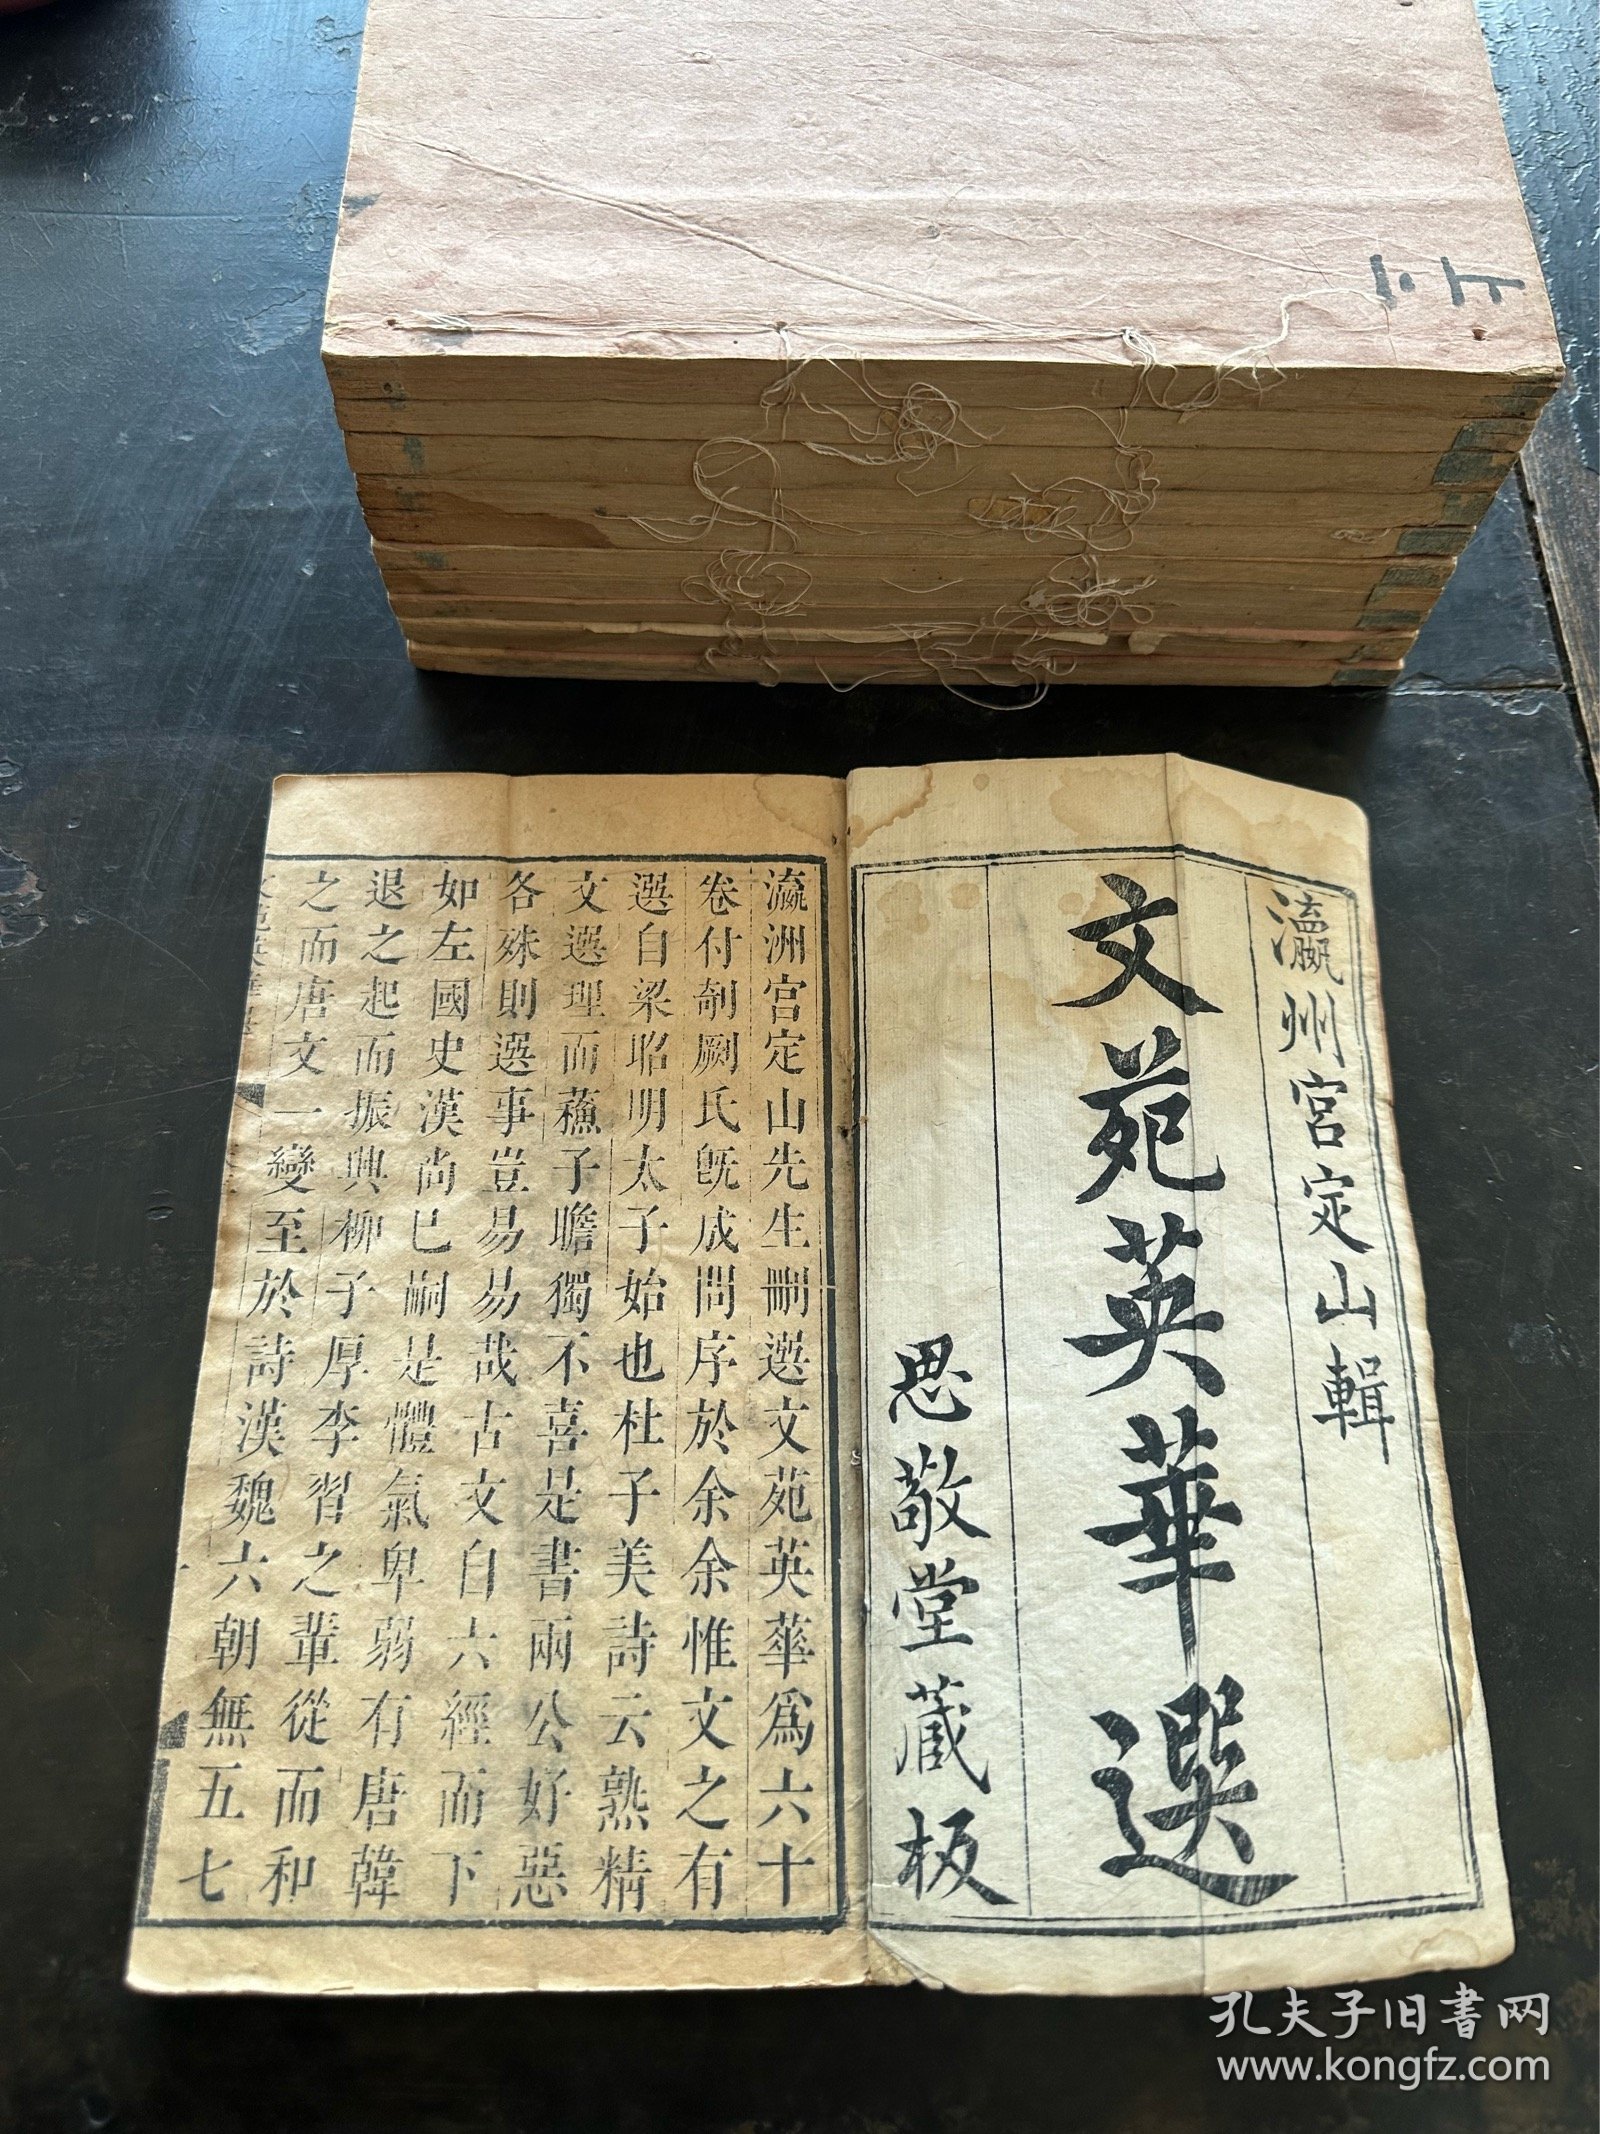 上二
瀛州宮定山輯
文苑英華選
思敬堂蔵板
瀛洲宮定山先生刪選文苑英華爲六十
卷付剞劂氏旣成問序於余余惟文之有
選自梁昭明太子始也杜子美詩云熟精
文選理而蘓子瞻獨不喜是書兩公好惡
各殊則選事豈易易哉古文自六經而下
如左國史漢尚已嗣是體氣卑弱有唐韓
退之起而振興柳子厚李習之輩從而和
之而唐文一變至於詩漢魏六朝無五七
孔夫子旧书网
www.kongfz.com